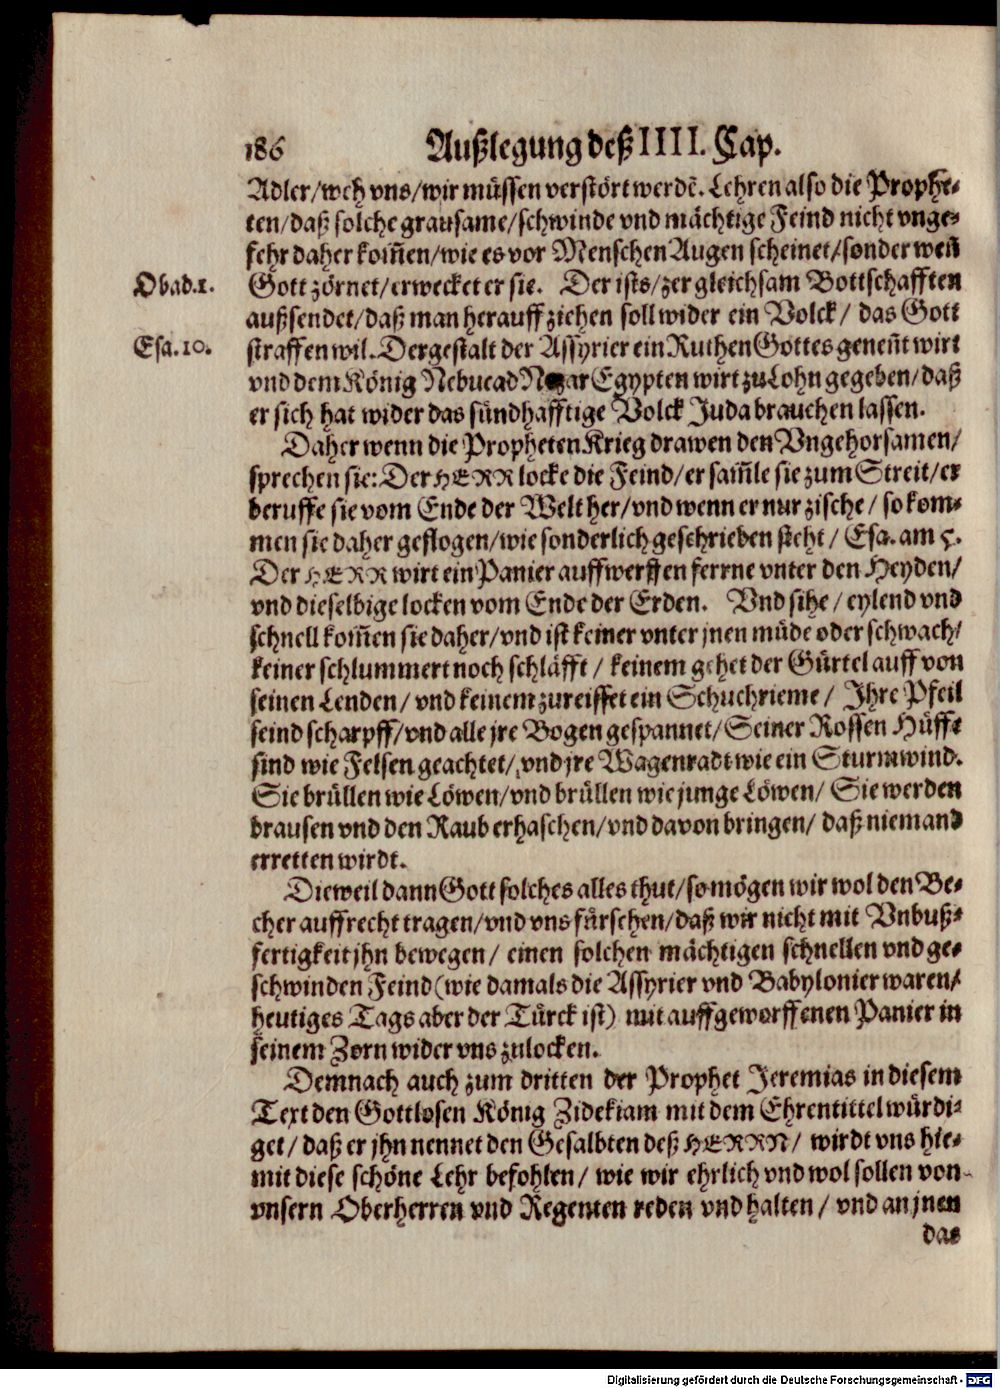 186 Außlegung deß IIII. Cap.
Adler/weh vns/wir müssen verstört werdẽ. Lehren also die Prophe-
ten/daß solche grausame/schwinde vnd mächtige Feind nicht vnge-
fehr daher kom̃en/wie es vor Menschen Augen scheinet/sonder weñ
Obad.1. Gott zörnet/erwecket er sie. Der ists/zer gleichsam Bottschafften
außsendet/daß man herauff ziehen soll wider ein Volck/ das Gott
Esa.10. straffen wil. Dergestalt der Assyrier ein Ruthen Gottes geneñt wirt
vnd dem König Nebucad Nezar Egypten wirt zu Lohn gegeben/daß
er sich hat wider das sündhafftige Volck Juda brauchen lassen.
Daher wenn die Propheten Krieg drawen den Vngehorsamen/
sprechen sie: Der HERR locke die Feind/er sam̃le sie zum Streit/er
beruffe sie vom Ende der Welt her/vnd wenn er nur zische/ so kom-
men sie daher geflogen/wie sonderlich geschrieben steht/ Esa. am 5.
Der HERR wirt ein Panier auffwerffen ferrne vnter den Heyden/
vnd dieselbige locken vom Ende der Erden. Vnd sihe/ eylend vnd
schnell kom̃en sie daher/vnd ist keiner vnter jnen müde oder schwach/
keiner schlummert noch schläfft/ keinem gehet der Gürtel auff von
seinen Lenden/ vnd keinem zureisset ein Schuchrieme/ Ihre Pfeil
seind scharpff/vnd alle jre Bogen gespannet/ Seiner Rossen Hüffe
sind wie Felsen geachtet/ vnd jre Wagenradt wie ein Sturmwind.
Sie brüllen wie Löwen/vnd brüllen wie junge Löwen/ Sie werden
brausen vnd den Raub erhaschen/vnd davon bringen/ daß niemand
erretten wirdt.
Dieweil dann Gott solches alles thut/so mögen wir wol den Be-
cher auffrecht tragen/vnd vns fürsehen/daß wir nicht mit Vnbuß-
fertigkeit jhn bewegen/ einen solchen mächtigen schnellen vnd ge-
schwinden Feind (wie damals die Assyrier vnd Babylonier waren/
heutiges Tags aber der Türck ist) mit auffgeworffenen Panier in
seinem Zorn wider vns zulocken.
Demnach auch zum dritten der Prophet Jeremias in diesem
Text den Gottlosen König Zidekiam mit dem Ehrentittel würdi-
get/ daß er jhn nennet den Gesalbten deß HERRN/ wirdt vns hie-
mit diese schöne Lehr befohlen/ wie wir ehrlich vnd wol sollen von
vnsern Oberherren vnd Regenten reden vnd halten/ vnd an jnen
das
Digitalisierung gefördert durch die Deutsche Forschungsgemeinschaft - DFG